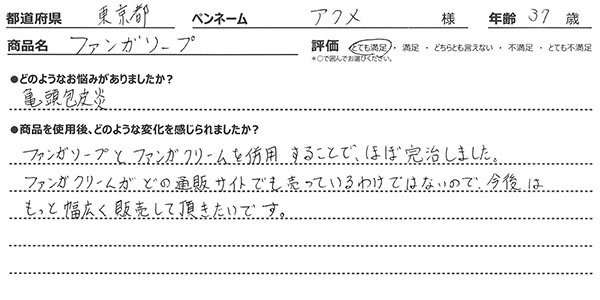 都道府県 東京都 ペンネーム アクメ 様 年齢 37 歳
商品名 ファンガソープ 評価 とても満足・満足・どちらとも言えない・不満足・とても不満足
*○で囲んでお選びください。
●どのようなお悩みがありましたか?
亀頭包皮炎
●商品を使用後、どのような変化を感じられましたか?
ファンガソープとファンガクリームを併用することで、ほぼ完治しました。
ファンガクリームがどの通販サイトでも売っているわけではないので、今後は
もっと幅広く販売して頂きたいです。